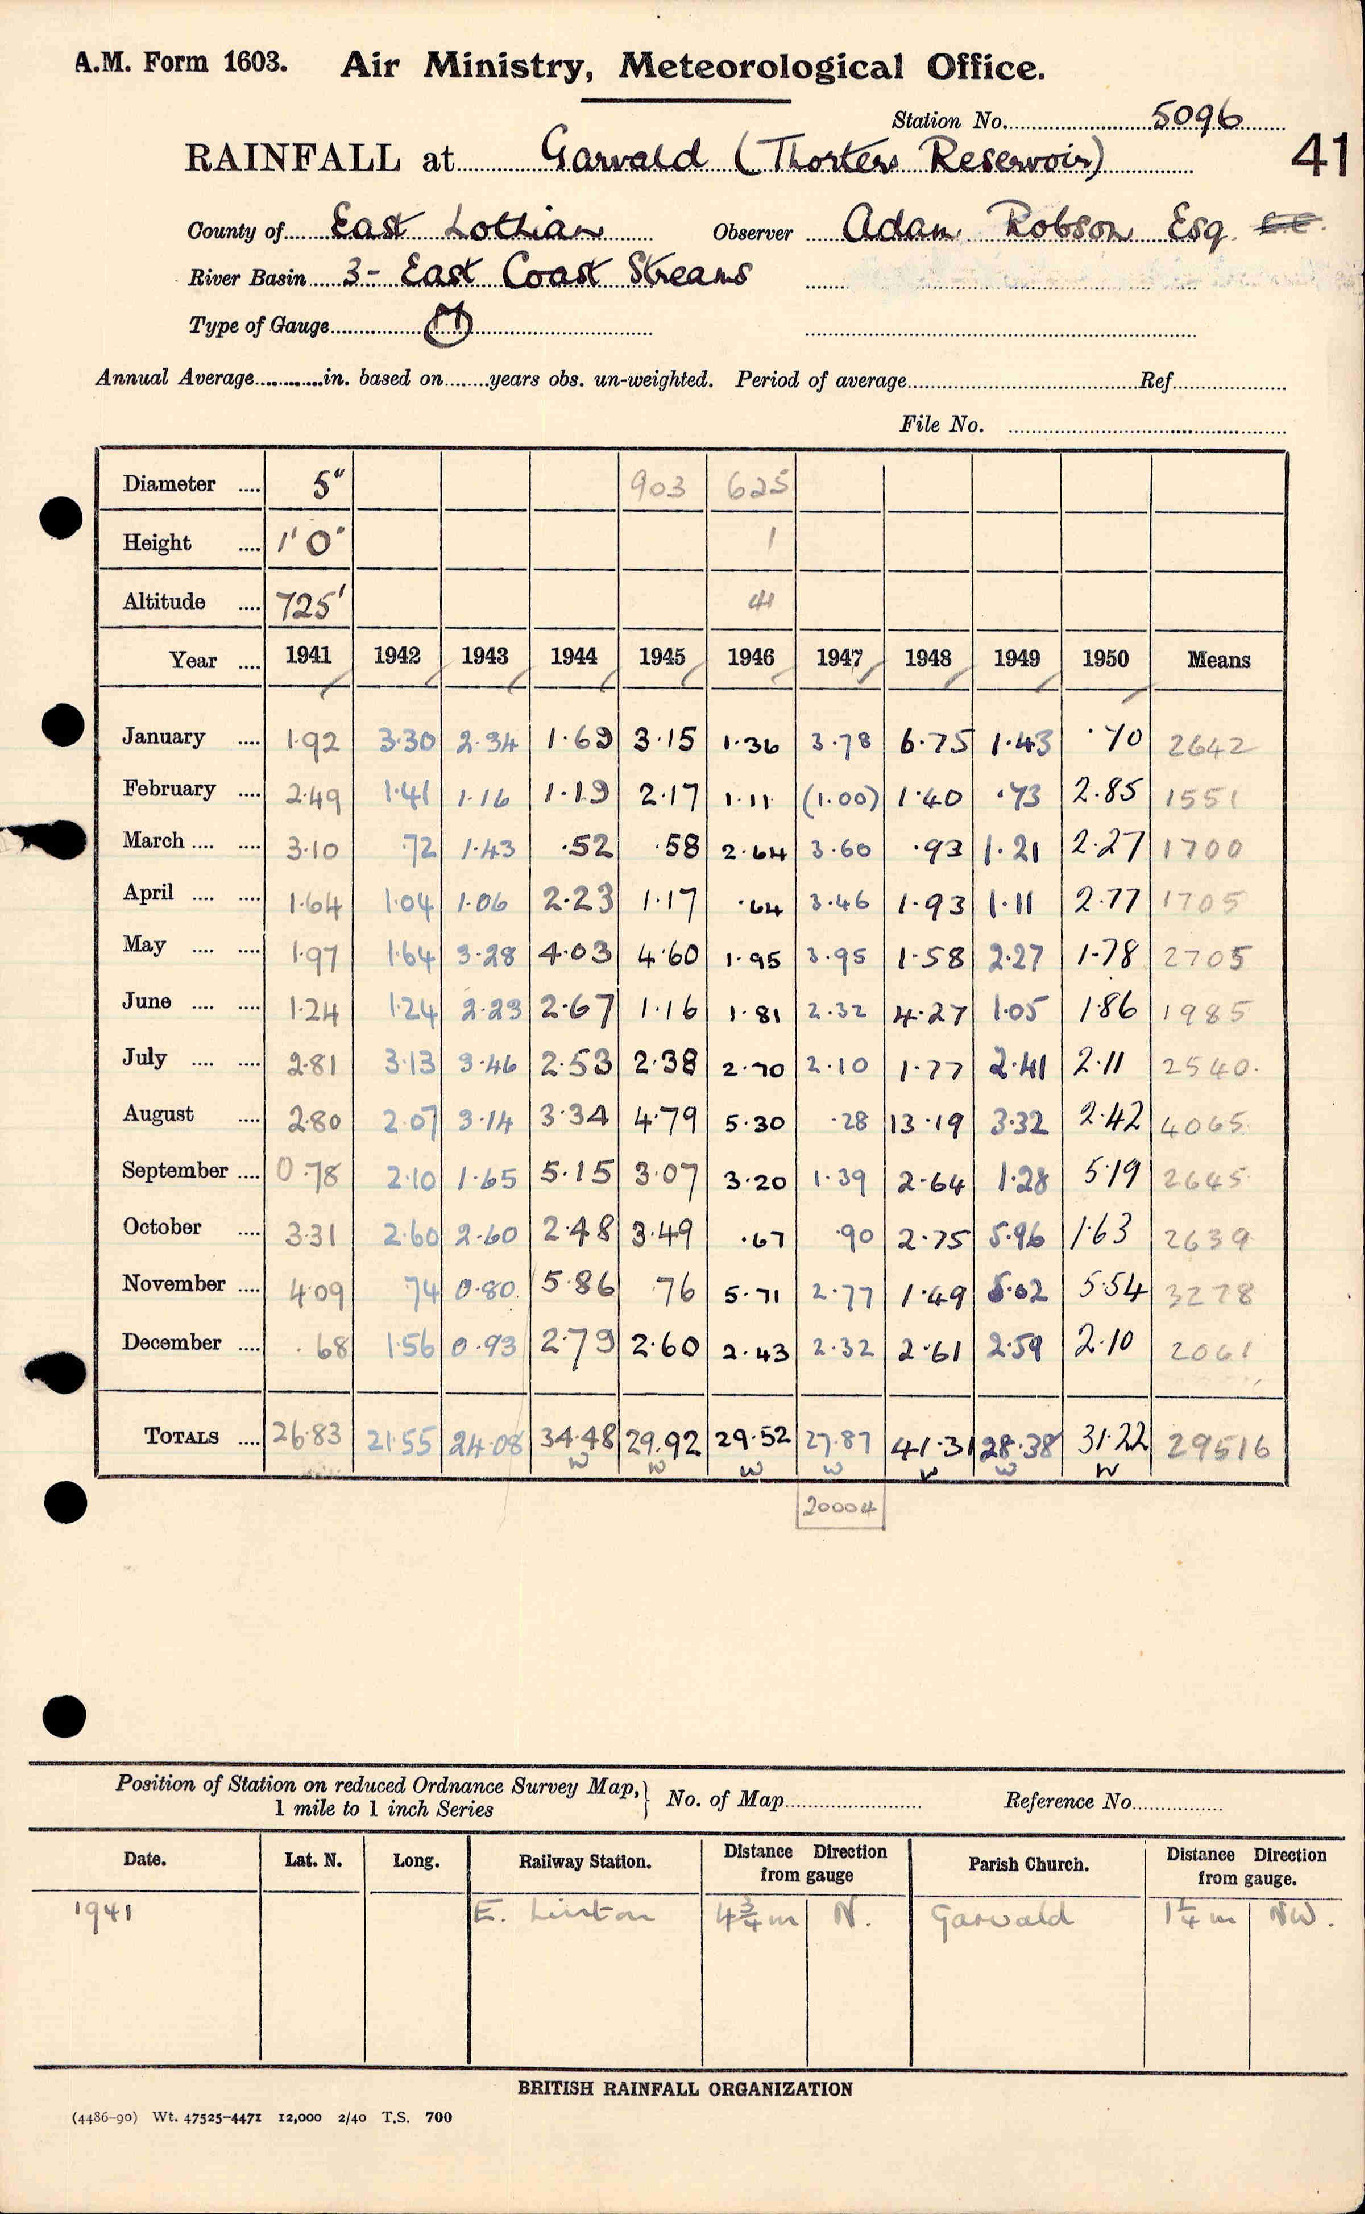 A.M. Form 1603. Air Ministry, Meteorological Office.
Station No. 5096
RAINFALL at Garvald (Thorters Reservoir) 41
County of East Lothian Observer Adam Robson Esq
River Basin 3- East Coast Streams
Type of Gauge M
Annual Average in. based on years obs. un-weighted. Period of average Ref
File No.
Diameter .... 5" 903 625
Height .... 1' 0" 1
Altitude .... 725' 41
Year .... 1941 1942 1943 1944 1945 1946 1947 1948 1949 1950 Means
January .... 1.92 3.30 2.34 1.69 3.15 1.36 3.78 6.75 1.43 .70 2642
February .... 2.49 1.41 1.16 1.19 2.17 1.11 (1.00) 1.40 .73 2.85 1551
March .... .... 3.10 .72 1.43 .52 .58 2.64 3.60 .93 1.21 2.27 1700
April .... .... 1.64 1.04 1.06 2.23 1.17 .64 3.46 1.93 1.11 2.77 1705
May .... .... 1.97 1.64 3.28 4.03 4.60 1.95 3.95 1.58 2.27 1.78 2705
June .... .... 1.24 1.24 2.23 2.67 1.16 1.81 2.32 4.27 1.05 1.86 1985
July .... .... 2.81 3.13 3.46 2.53 2.38 2.70 2.10 1.77 2.41 2.11 2540.
August .... 2.80 2.07 3.14 3.34 4.79 5.30 .28 13.19 3.32 2.42 4065
September .... 0.78 2.10 1.65 5.15 3.07 3.20 1.39 2.64 1.28 5.19 2645
October .... 3.31 2.60 2.60 2.48 3.49 .67 .90 2.75 5.96 1.63 2639
November .... 4.09 74 0.80 5.86 .76 5.71 2.77 1.49 5.02 5.54 3278
December .... .68 1.56 0.93 2.79 2.60 2.43 2.32 2.61 2.59 2.10 2061
TOTALS .... 26.83 21.55 24.08 34.48 29.92 29.52 27.87 41.31 28.38 31.22 29516
w w w w w w w
20004
Position of Station on reduced Ordnance Survey Map,
1 mile to 1 inch Series
No. of Map Reference No.
Date. Lat. N. Long. Railway Station. Distance Direction from gauge Parish Church. Distance Direction from gauge.
1941 E. Linton 4¾ m N. Garvald 1¼ m NW.
BRITISH RAINFALL ORGANIZATION
(4486-90) Wt. 47525-4471 12,000 2/40 T.S. 700